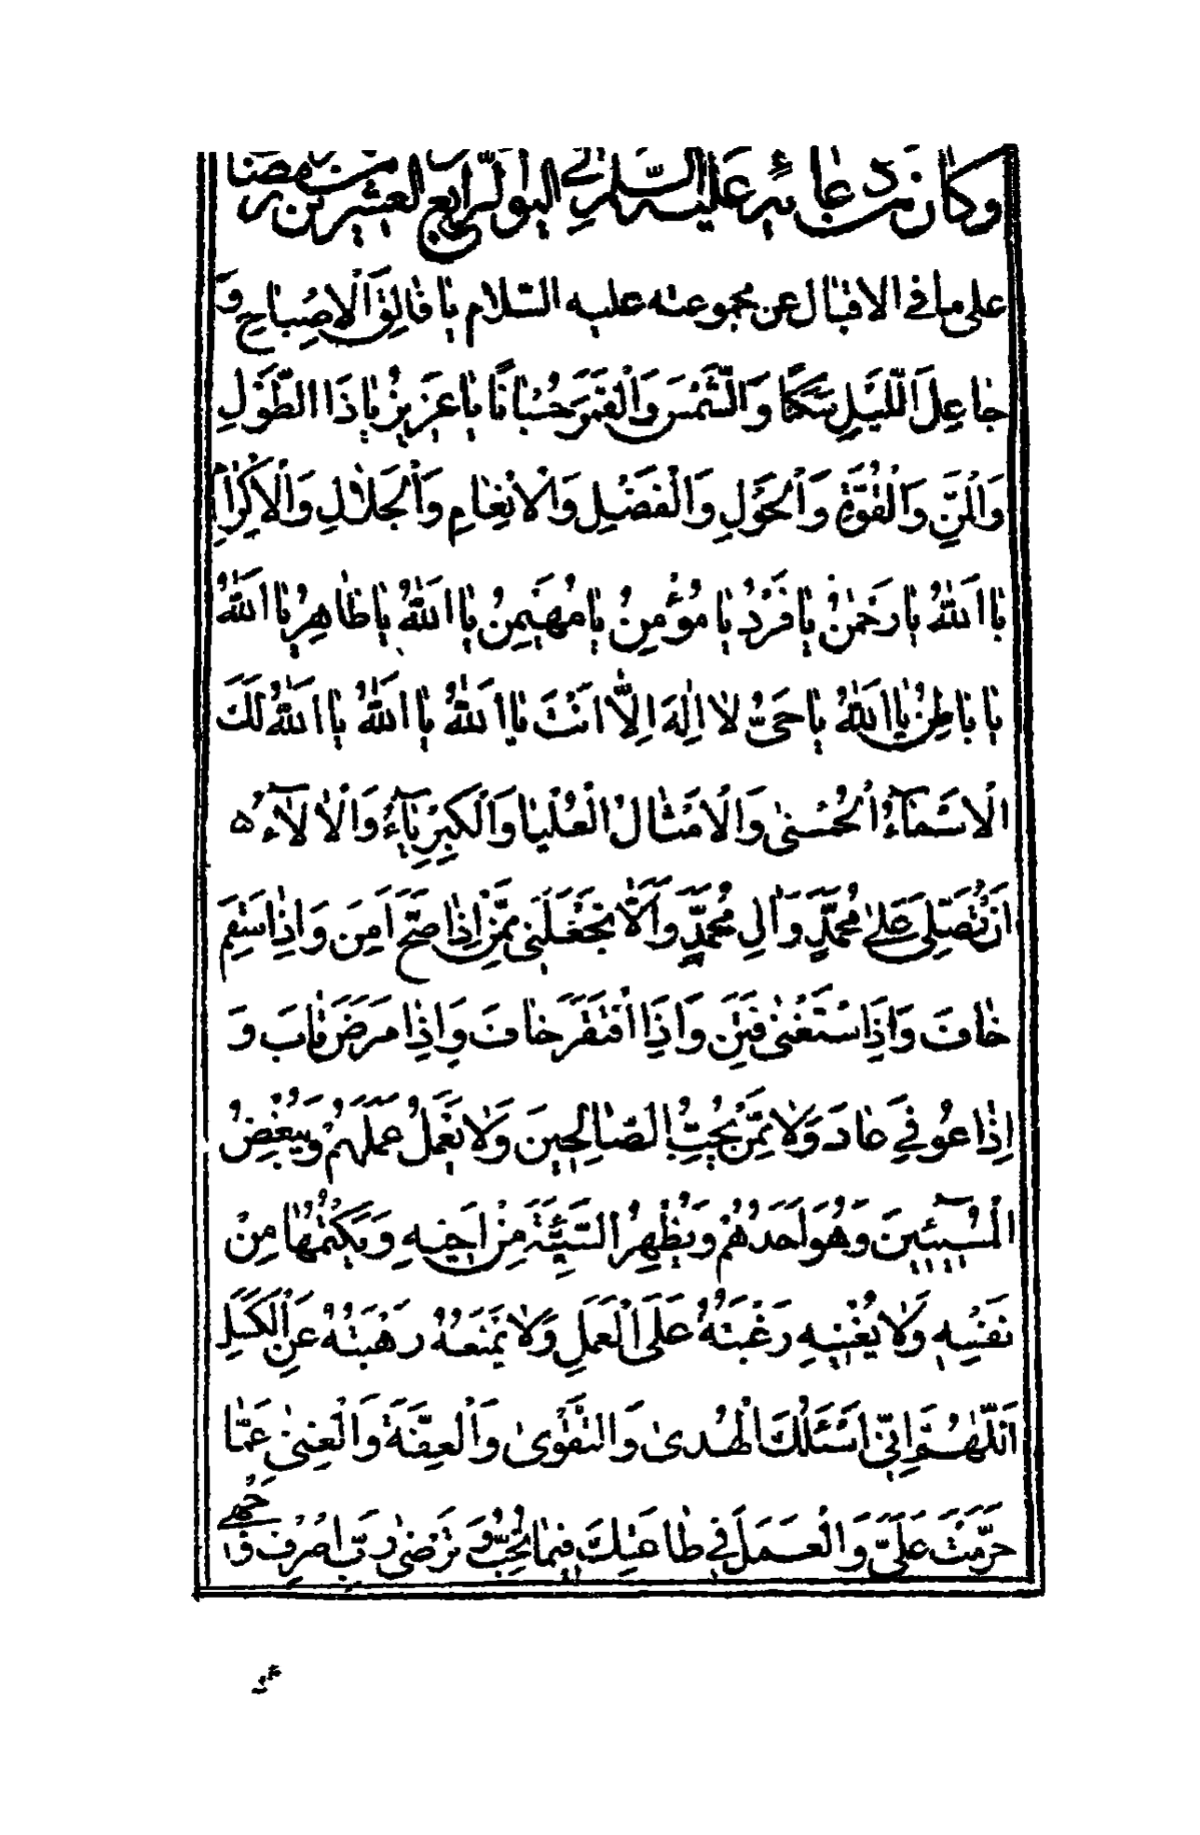 وَكَانَ مِنْ دُعَائِهِ عَلَيْهِ السَّلَامُ فِي الْيَوْمِ الرَّابِعِ وَالْعِشْرِينَ مِنْ رَمَضَانَ
على ما في الاقبال عن مجموعته عليه السّلام يا فالِقَ الْاِصْباحِ وَ
جاعِلَ اللَّيْلِ سَكَنًا وَالشَّمْسَ وَالْقَمَرَ حُسْبانًا يا عَزِيزُ يا ذَا الطَّوْلِ
وَالْمَنِّ وَالْقُوَّةِ وَالْحَوْلِ وَالْفَضْلِ وَالْاِنْعامِ وَالْجَلالِ وَالْاِكْرامِ
يا اَللّٰهُ يا رَحْمٰنُ يا فَرْدُ يا مُؤْمِنُ يا مُهَيْمِنُ يا اَللّٰهُ يا ظاهِرُ يا اَللّٰهُ
يا باطِنُ يا اَللّٰهُ يا حَيُّ لا اِلٰهَ اِلّا اَنْتَ يا اَللّٰهُ يا اَللّٰهُ يا اَللّٰهُ لَكَ
الْاَسْماءُ الْحُسْنىٰ وَالْاَمْثالُ الْعُلْيا وَالْكِبْرِياءُ وَالْاٰلاءُ
اَنْ تُصَلِّيَ عَلىٰ مُحَمَّدٍ وَاٰلِ مُحَمَّدٍ وَاَلّا تَجْعَلَنِي مِمَّنْ اِذا صَحَّ اَمِنَ وَاِذا سَقِمَ
خافَ وَاِذَا سْتَغْنىٰ فَتِنَ وَاِذَا افْتَقَرَ خافَ وَاِذا مَرَضَ تابَ وَ
اِذا عُوفِيَ عادَ وَلا مِمَّنْ يُحِبُّ الصّالِحِينَ وَلا يَعْمَلُ عَمَلَهُمْ وَيُبْغِضُ
الْمُسِيئِينَ وَهُوَ اَحَدُهُمْ وَيُظْهِرُ السَّيِّئَةَ مِنْ اَخِيهِ وَيَكْتُمُها مِنْ
نَفْسِهِ وَلا يُعْنِيهِ رَغْبَتُهُ عَلَى الْعَمَلِ وَلا تَمْنَعُهُ رَهْبَتُهُ عَنِ الْكَسَلِ
اَللّٰهُمَّ اِنِّي اَسْئَلُكَ الْهُدىٰ وَالتَّقْوىٰ وَالْعِفَّةَ وَالْغِنىٰ عَمّا
حَرَّمْتَ عَلَيَّ وَالْعَمَلَ فِي طاعَتِكَ فِيما تُحِبُّ وَتَرْضىٰ رَبِّ اصْرِفْ وَجْهِي